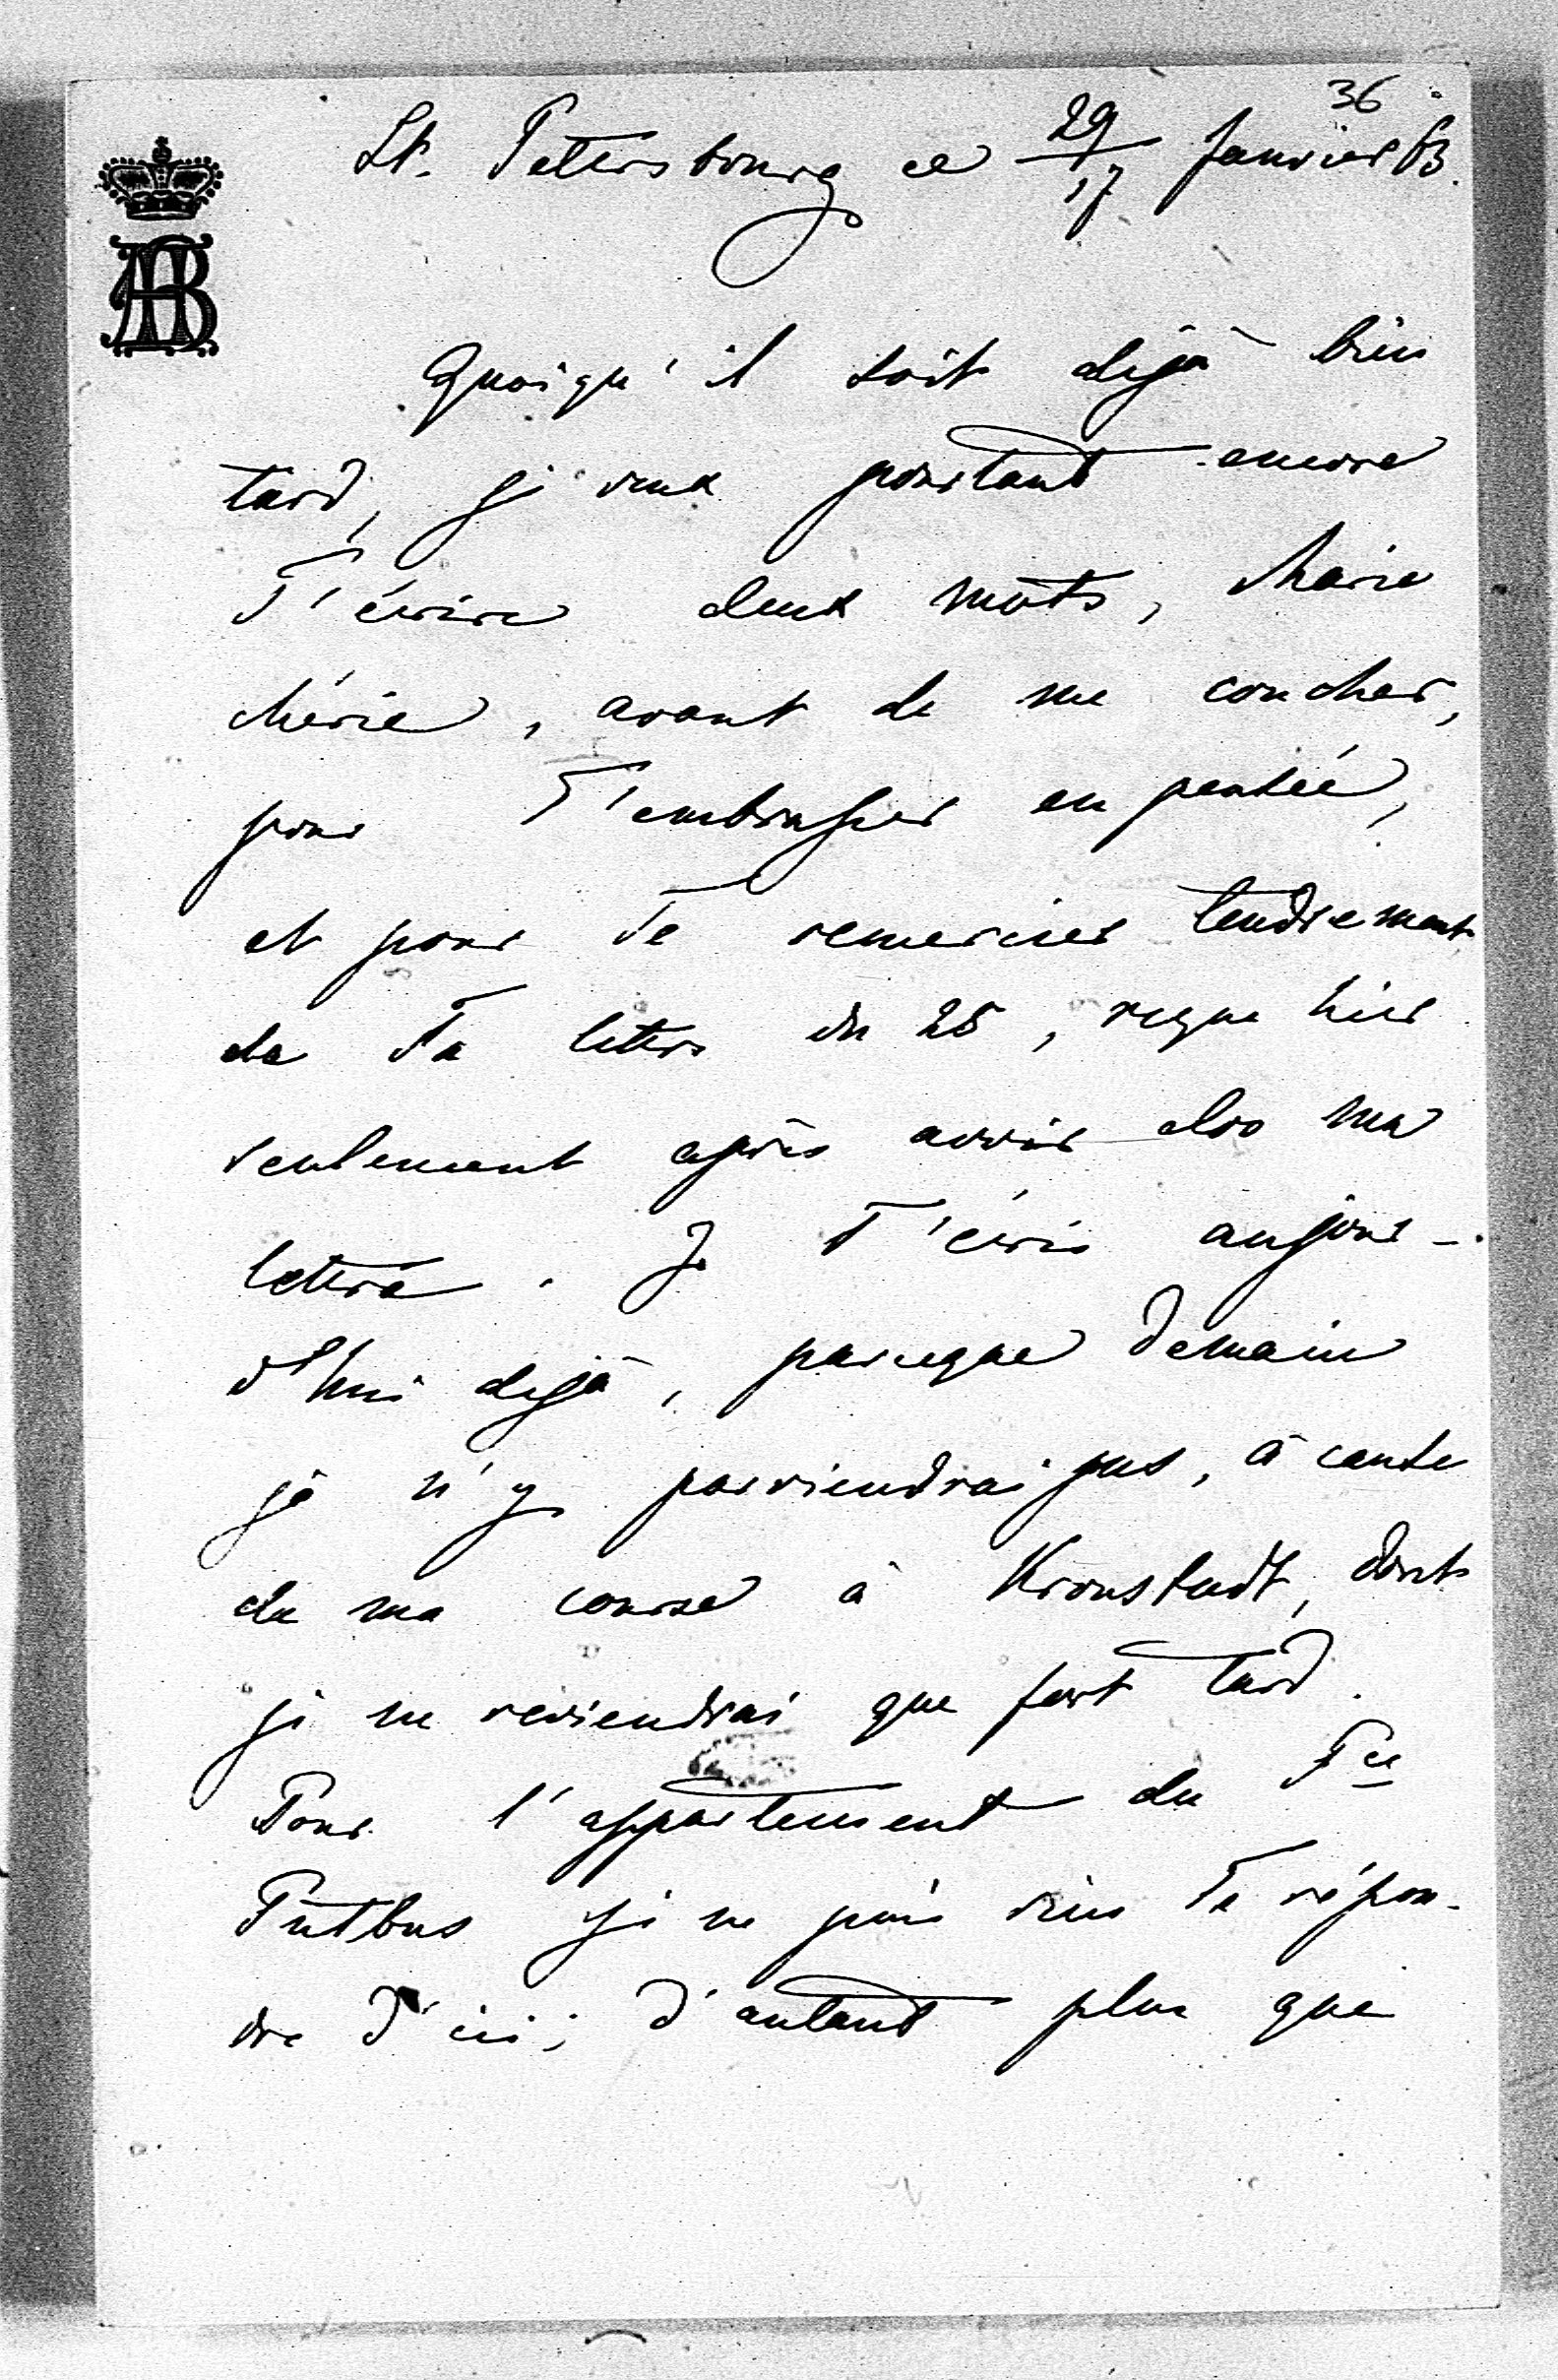 36
St. Petersbourg ce 29/17 Janvier 63.
AB
Quoiqu'il soit dejà bien
tard, je veux pourtant encore
T'écrire deux mots, Marie
chérie, avant de me coucher,
pour T'embrasser en pensée,
et pour Te remercier tendrement
de Ta lettre du 25, reçue hier
seulement après avoir clos ma
lettre. Je T'écris aujour-
d'hui dejà, parceque demain
je n'y parviendrai pas, à cause
de ma course à Kronstadt, dont
je ne reviendrai que fort tard.
Pour l'appartement du Pce
Putbus je ne puis rien Te répon-
dre d'ici; d'autant plus que